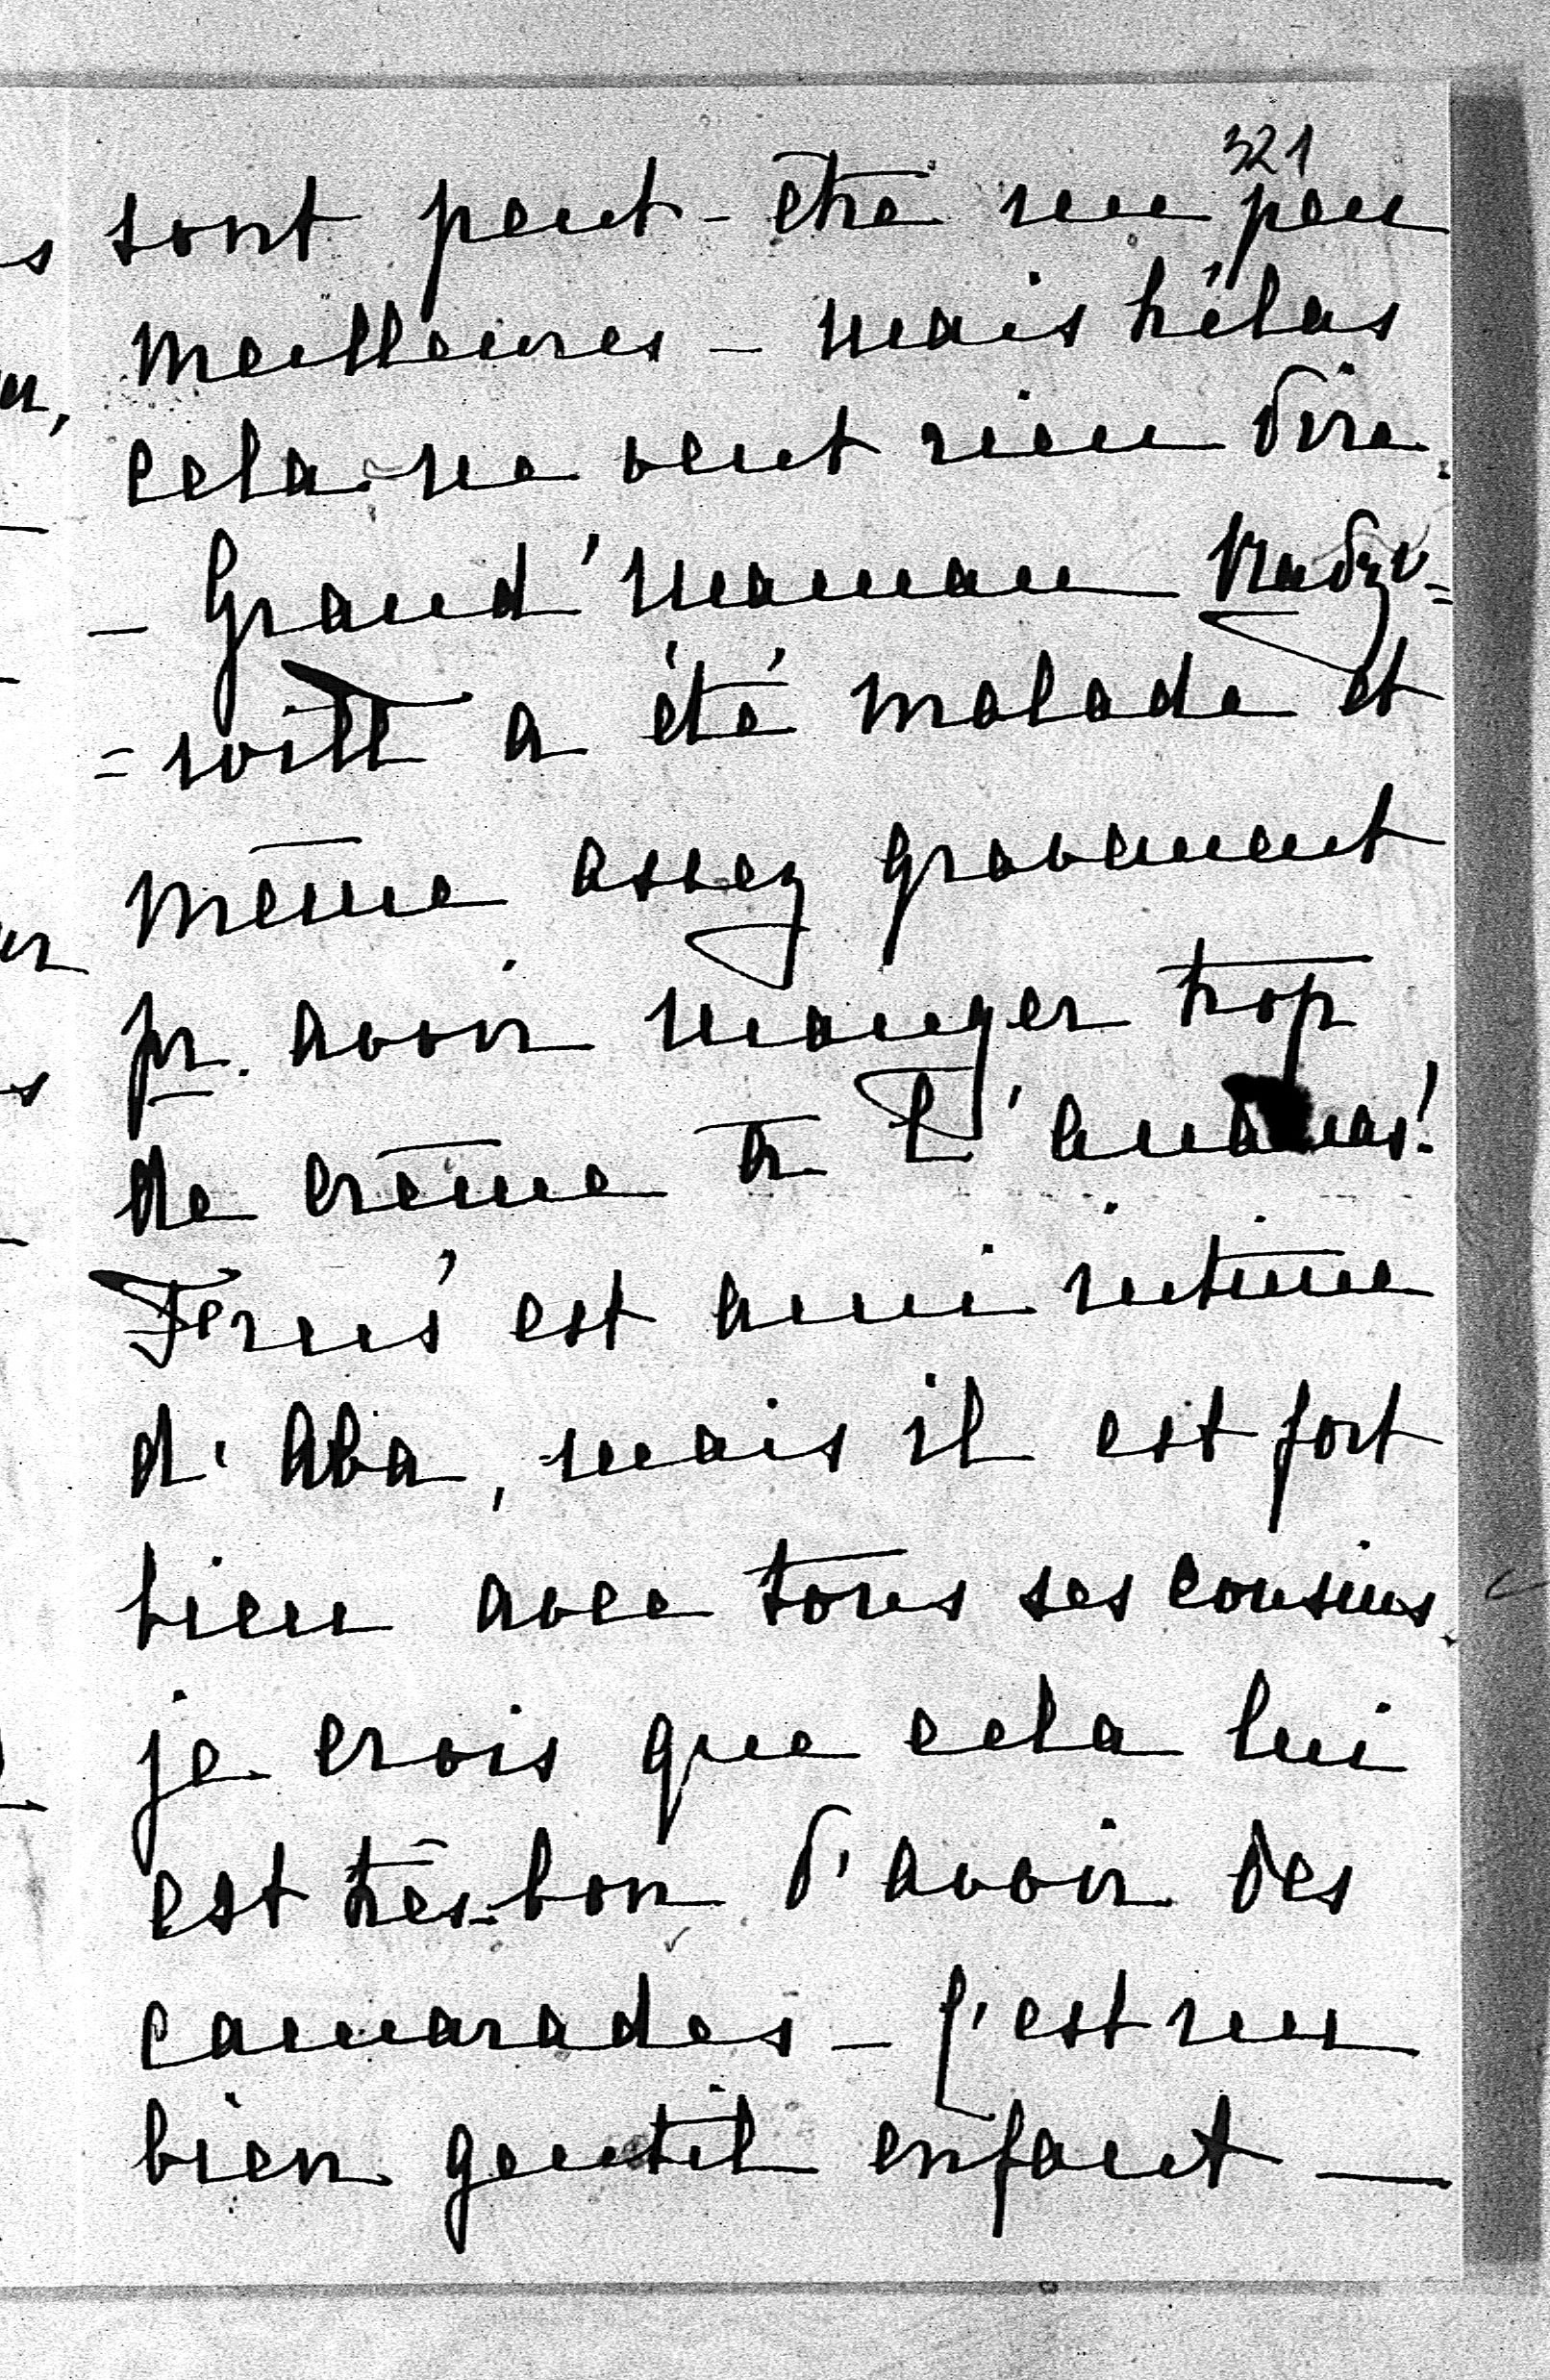 321
sont peut-être un peu
meilleures – mais hélas
cela ne veut rien dire.
– Grand'maman
a été malade et
même assez gravement
pr. avoir manger trop
de crême à l'ananas!
est ami intime
d'Aba, mais il est fort
bien avec tous ses cousins.
je crois que cela lui
est très-bon d'avoir des
camarades – c'est un
bien gentil enfant —